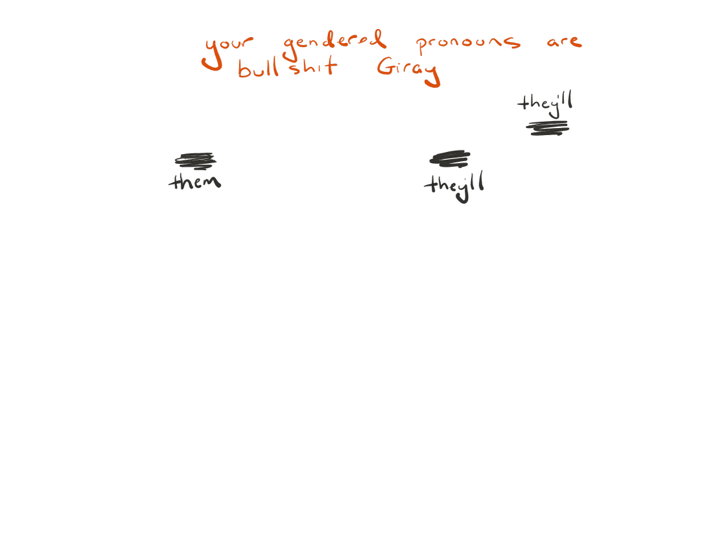 your gendered pronouns are
bullshit Giray
they'll
them
they'll